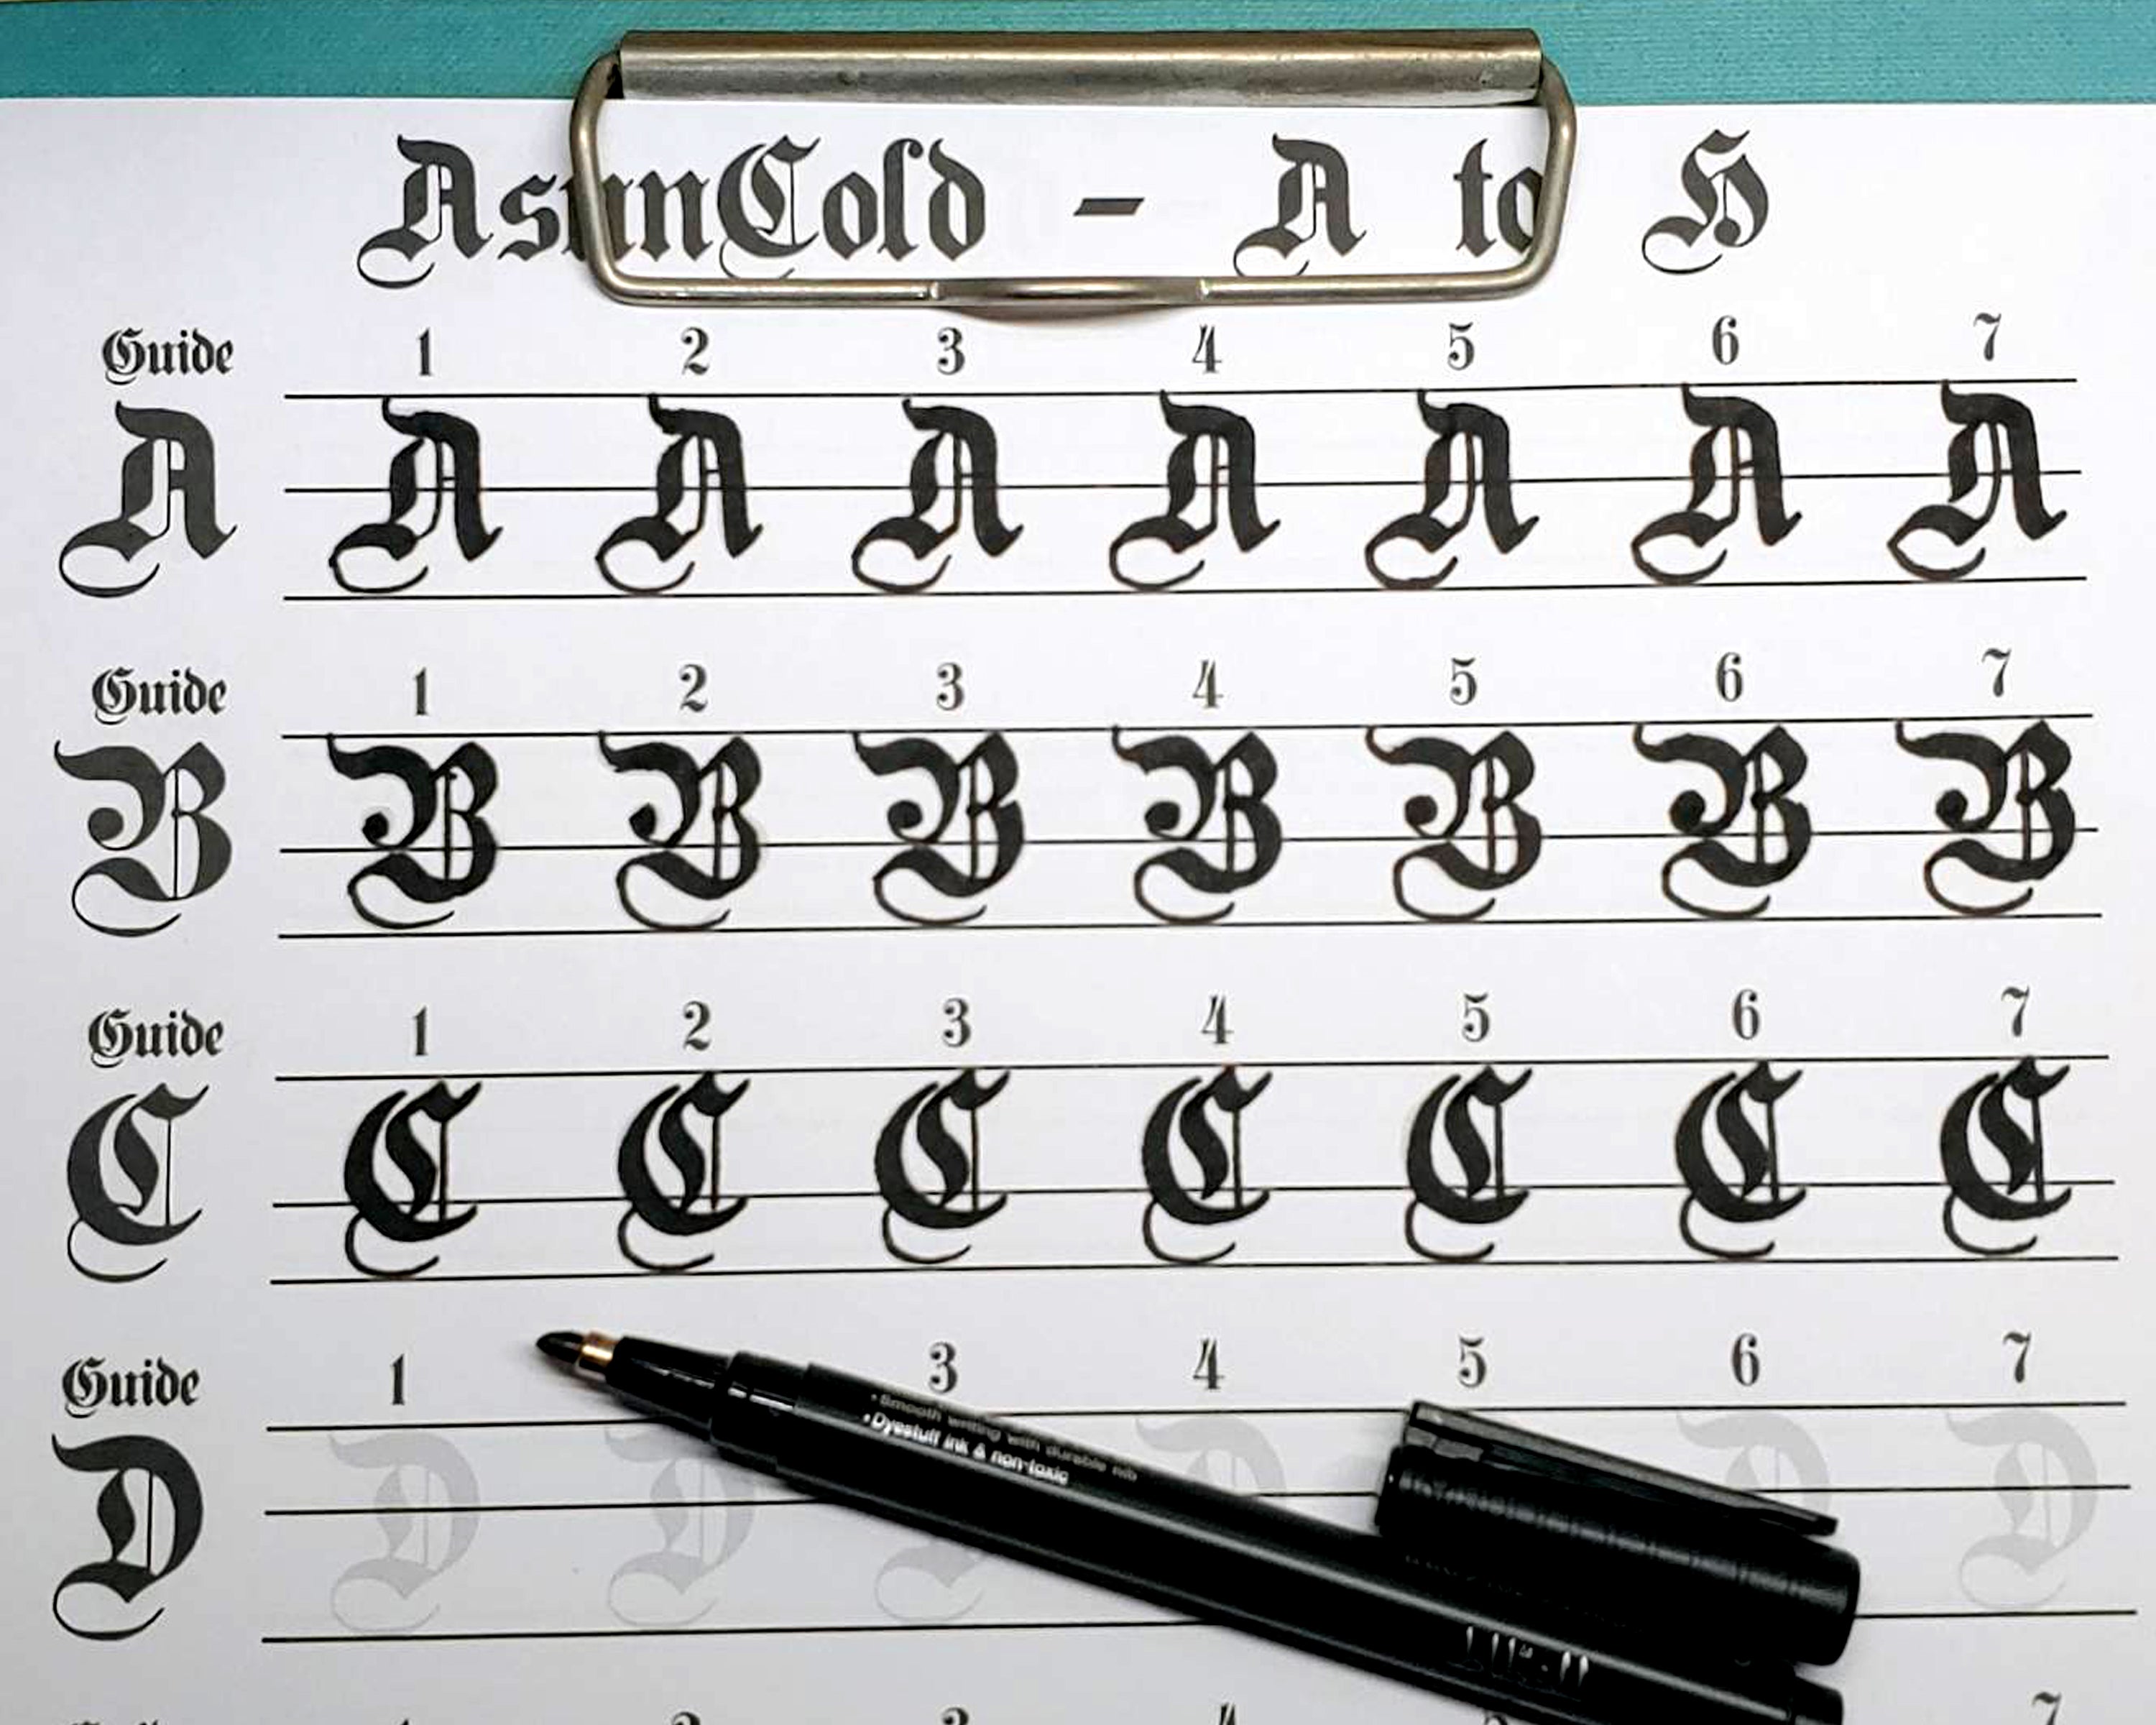 AsunCold - A to H
Guide 1 2 3 4 5 6 7
A A A A A A A A
Guide 1 2 3 4 5 6 7
B B B B B B B B
Guide 1 2 3 4 5 6 7
C C C C C C C C
Guide 1 3 4 5 6 7
D D D D D D D
• Smooth writing with durable nib
• Dyestuff ink & non-toxic